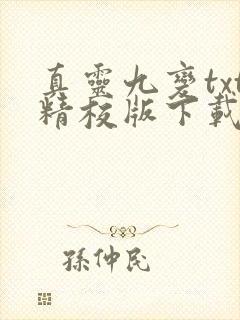 真靈九變txt
精校版下載
孫仲民